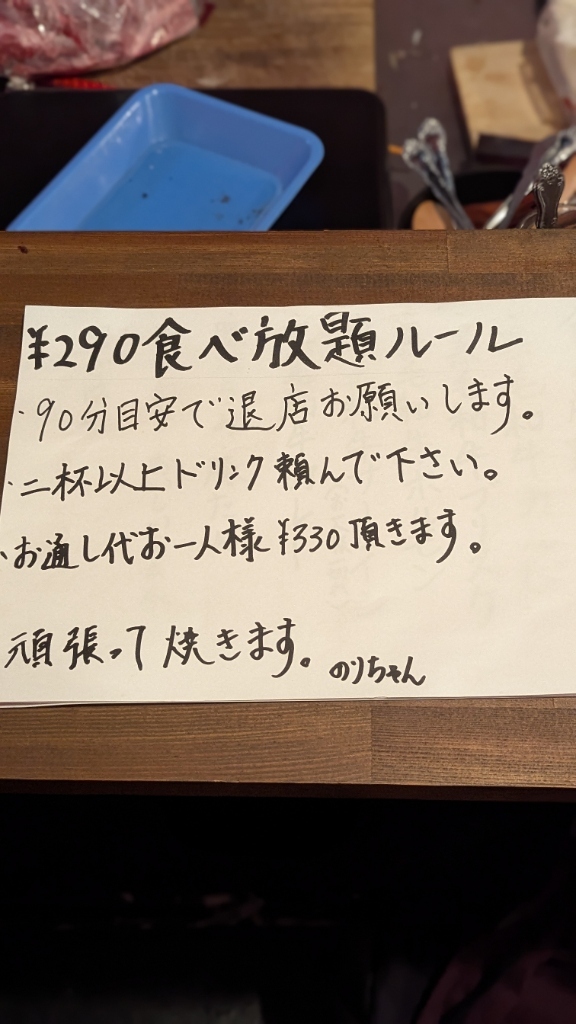 ¥290食べ放題ルール
・90分目安で退店お願いします。
・二杯以上ドリンク頼んで下さい。
・お通し代お一人様¥330頂きます。
頑張って焼きます。のりちゃん